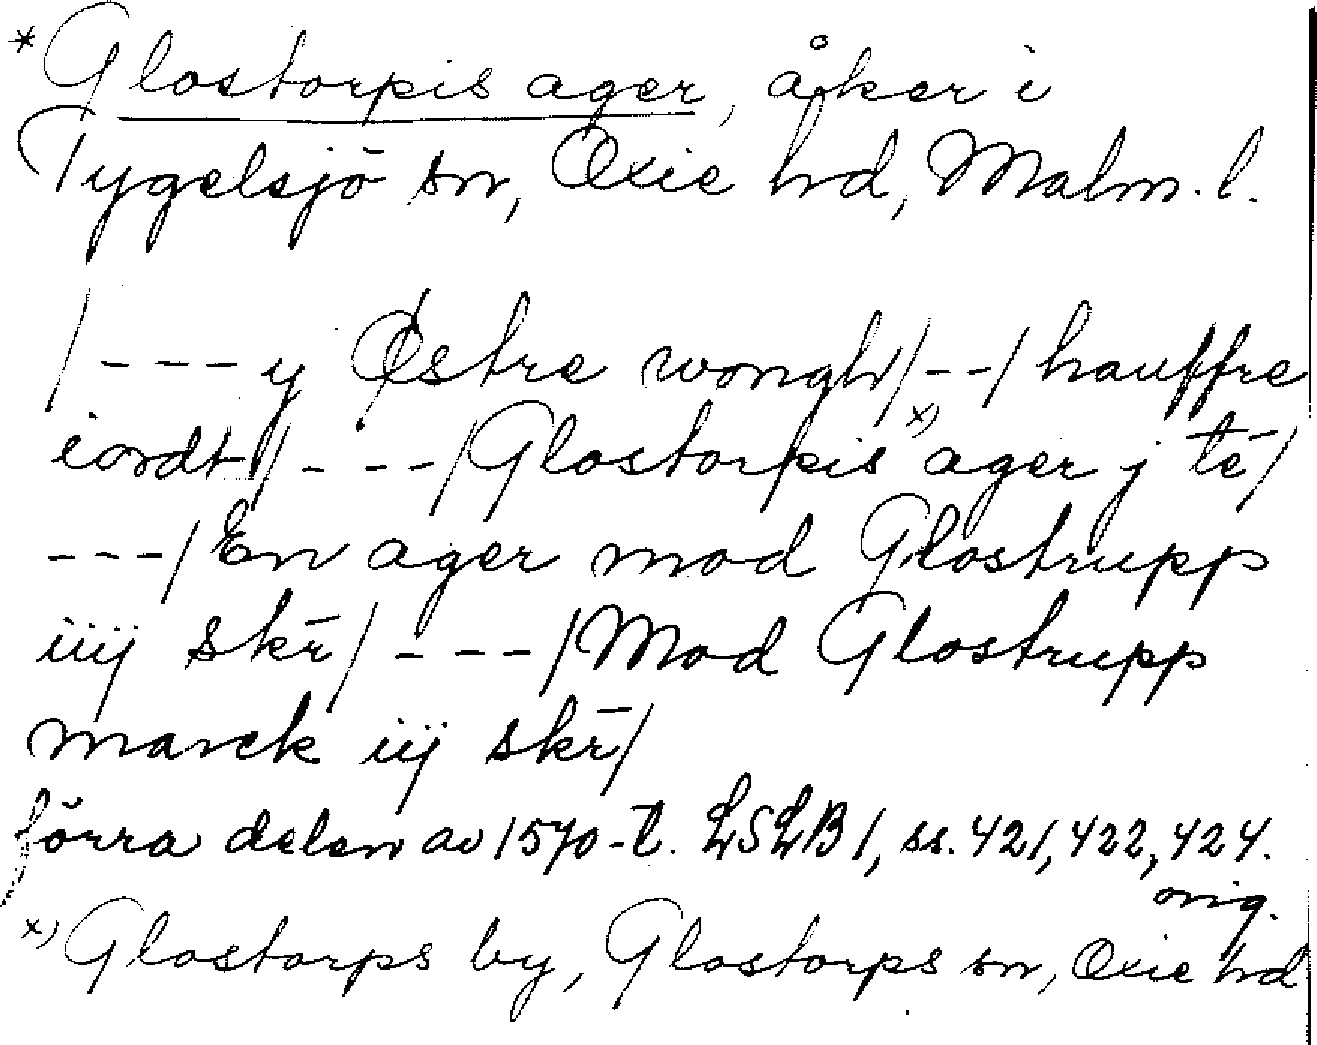 *Glostorpis ager, åker i
Tygelsjö sn, Oxie hd, Malm. l.
/---y Østre wongh/--/hauffre
iordt/---/Glostorpis x) ager j tē/
---/En ager mod Glostrupp
iiij skr̄/---/Mod Glostrupp
marck iij skr̄/
förra delen av 1570-t. LSLB 1, ss. 421, 422, 424.
orig.
x) Glostorps by, Glostorps sn, Oxie hd